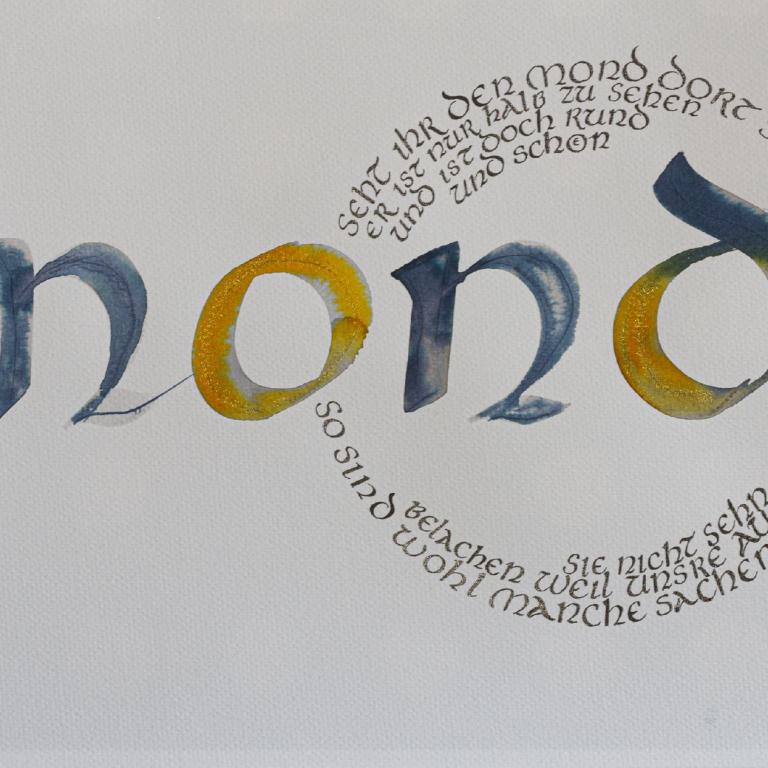 SEHT IHR DEN MOND DORT
ER IST NUR HALB ZU SEHEN
UND IST DOCH RUND
UND SCHÖN
mond
SO SIND WOHL MANCHE SACHEN
BELACHEN WEIL UNSRE AU
SIE NICHT SEHN